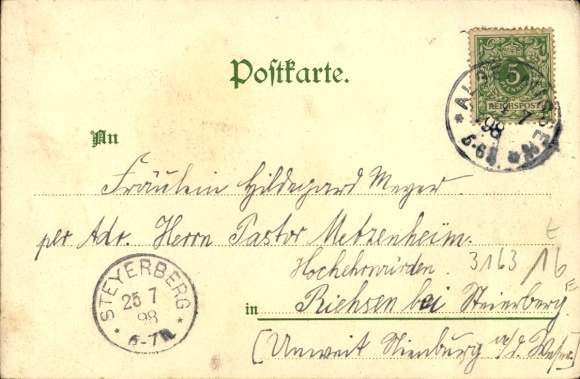 Postkarte.
5
PFENNIG
REICHSPOST
98
5-6N
An
Fräulein Hildegard Meyer
per Adr. Herrn Pastor Metzenheim.
Hochehrwürden.
3163/16
E
STEYERBERG
25 7
98
6-7N
in Riehsen bei Steierberg
[Unweit Nienburg a/d. Weser]